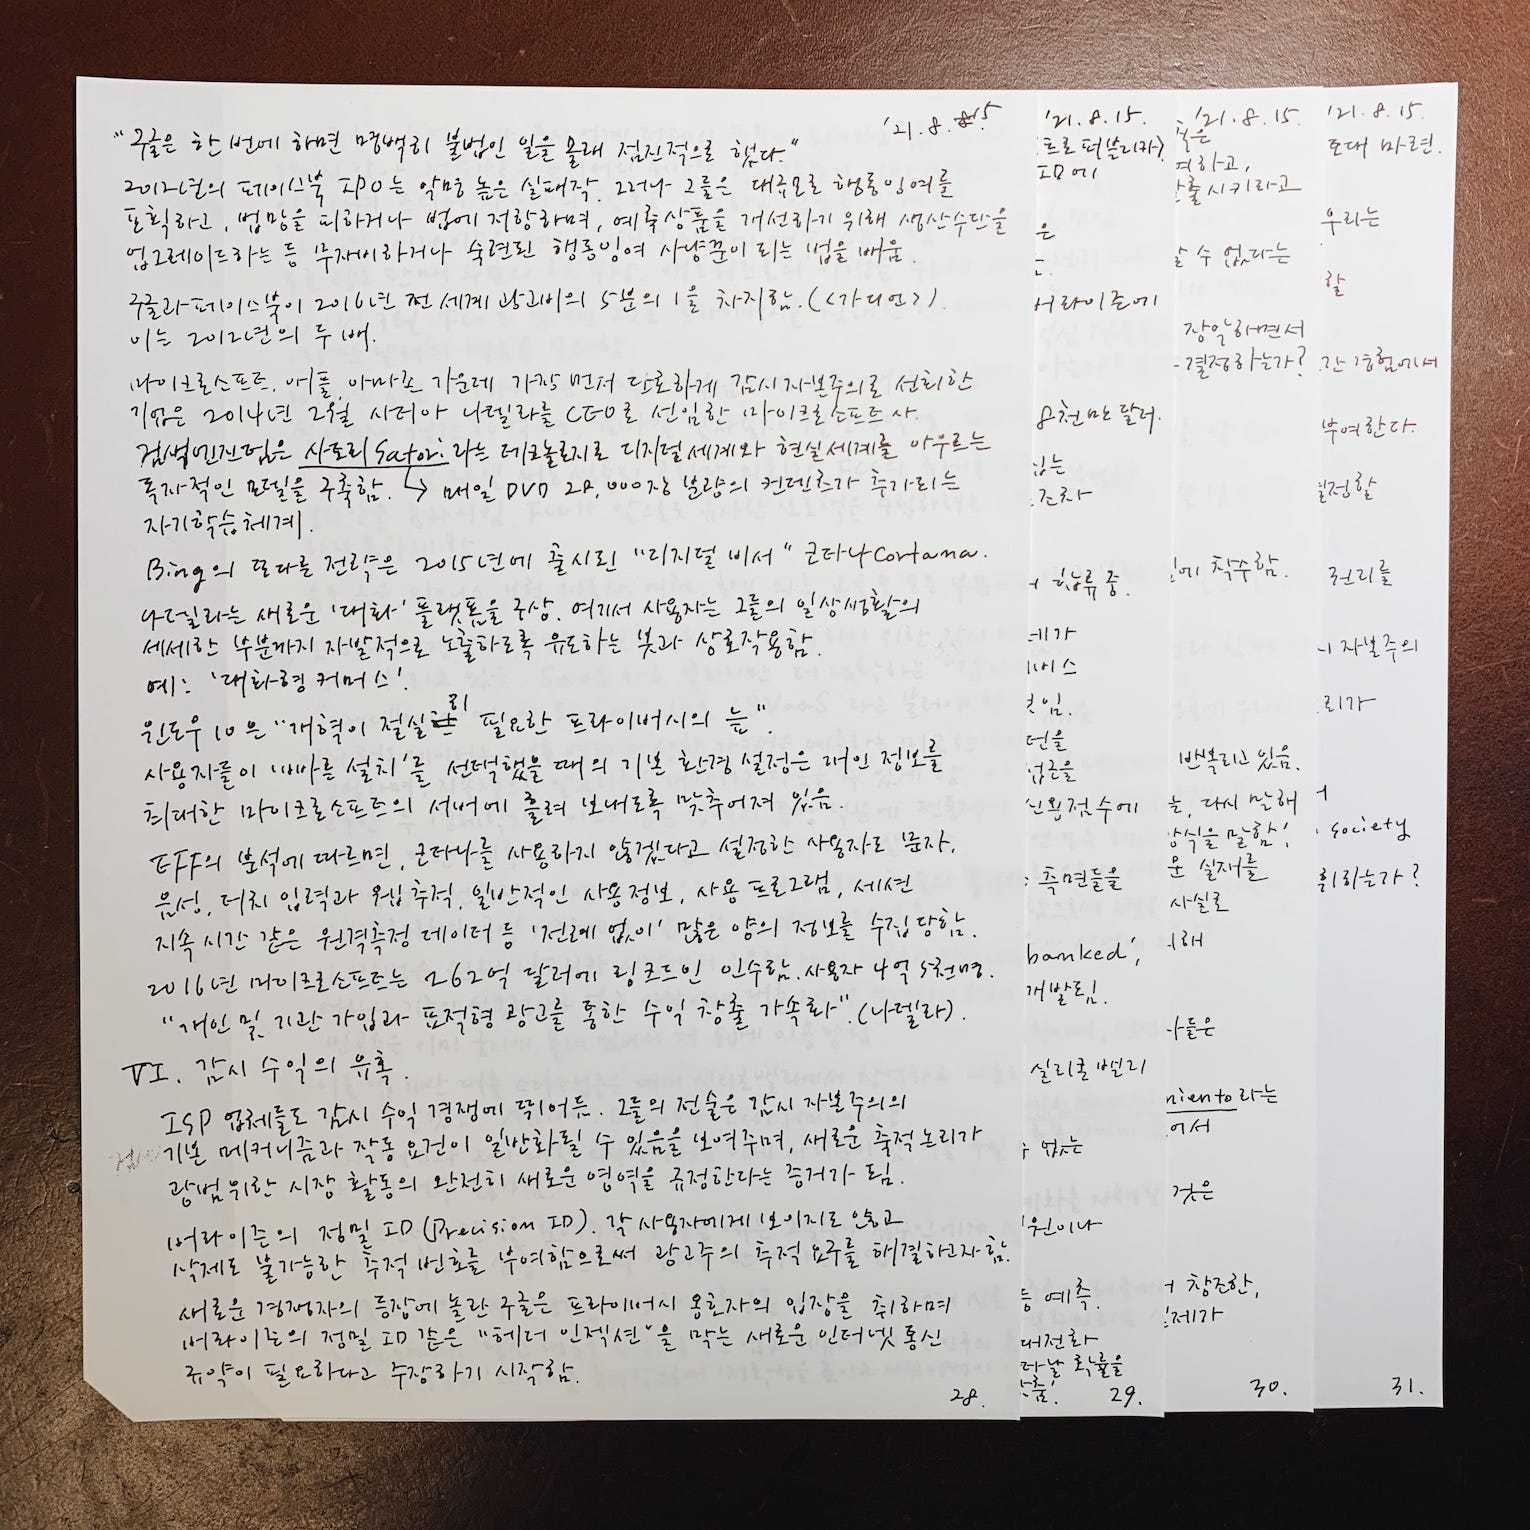 '21. 8. 15
"구글은 한 번에 하면 명백히 불법인 일을 몰래 점진적으로 했다."
2012년의 페이스북 IPO는 악명 높은 실패작. 그러나 그들은 대규모로 행동잉여를
포획하고, 법망을 피하거나 법에 저항하며, 예측상품을 개선하기 위해 생산수단을
업그레이드하는 등 무자비하거나 숙련된 행동잉여 사냥꾼이 되는 법을 배움.
구글과 페이스북이 2016년 전 세계 광고비의 5분의 1을 차지함. (<가디언>).
이는 2012년의 두 배.
마이크로소프트, 애플, 아마존 가운데 가장 먼저 단호하게 감시 자본주의로 선회한
기업은 2014년 2월 사티아 나델라를 CEO로 선임한 마이크로소프트 사.
검색엔진 빙은 사토리 Satori라는 테크놀로지로 디지털 세계와 현실 세계를 아우르는
독자적인 모델을 구축함. ↳ 매일 DVD 28,000장 분량의 컨텐츠가 추가되는
자기학습체계.
Bing의 또다른 전략은 2015년에 출시된 "디지털 비서" 코타나 Cortana.
나델라는 새로운 '대화' 플랫폼을 구상. 여기서 사용자는 그들의 일상생활의
세세한 부분까지 자발적으로 노출하도록 유도하는 봇과 상호작용함.
예: '대화형 커머스'.
윈도우 10은 "개혁이 절실히 필요한 프라이버시의 늪".
사용자들이 '빠른 설치'를 선택했을 때의 기본 환경 설정은 개인 정보를
최대한 마이크로소프트의 서버에 흘려 보내도록 맞추어져 있음.
EFF의 분석에 따르면, 코타나를 사용하지 않겠다고 설정한 사용자도 문자,
음성, 터치 입력과 웹 추적, 일반적인 사용정보, 사용 프로그램, 세션
지속 시간 같은 원격측정 데이터 등 '전례 없이' 많은 양의 정보를 수집 당함.
2016년 마이크로소프트는 262억 달러에 링크드인 인수함. 사용자 4억 5천명.
"개인 및 기관 가입과 표적형 광고를 통한 수익 창출 가속화". (나델라).
VI. 감시 수익의 유혹.
ISP 업체들도 감시 수익 경쟁에 뛰어듦. 그들의 전술은 감시 자본주의의
기본 메커니즘과 작동 요건이 일반화될 수 있음을 보여주며, 새로운 축적 논리가
광범위한 시장 활동의 완전히 새로운 영역을 규정한다는 증거가 됨.
버라이존의 정밀 ID (Precision ID). 각 사용자에게 보이지도 않고
삭제도 불가능한 추적 번호를 부여함으로써 광고주의 추적 요구를 해결하고자 함.
새로운 경쟁자의 등장에 놀란 구글은 프라이버시 옹호자의 입장을 취하며
버라이존의 정밀 ID 같은 "헤더 인젝션"을 막는 새로운 인터넷 통신
규약이 필요하다고 주장하기 시작함.
28.
'21. 8. 15.
(프로퍼블리카?
ID에
은
버라이존에
8천만 달러.
있는
합류 중.
네가
것임.
접근을
신용점수에
측면들을
banked',
개발됨.
실리콘 밸리
없는
원이나
등 예측.
대전화
타날 확률을
29.
'21. 8. 15.
혹은
여하고,
출시키라고
수 없다는
장악하면서
결정하는가?
에 착수함.
반복되고 있음.
는, 다시 말해
방식을 말함;
운 실재를
사실로
위해
자들은
miento라는
에서
것은
창조한,
30.
'21. 8. 15.
토대 마련.
우리는
할
인간 경험에서
부여한다.
결정할
권리를
자본주의
리가
society
하는가?
31.